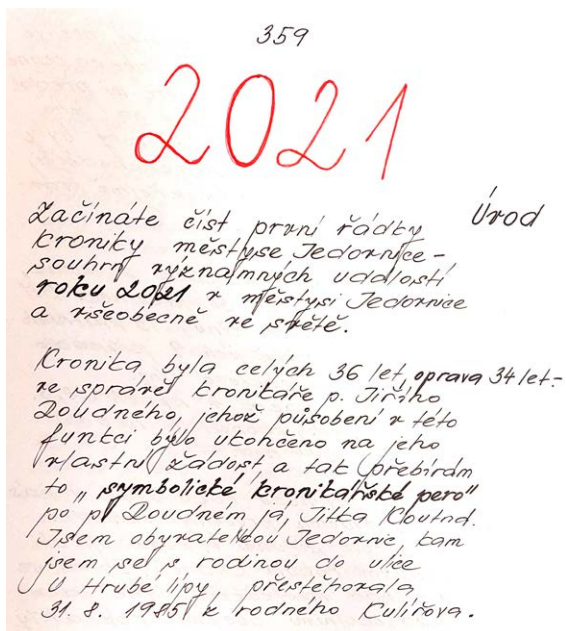 359
2021
Úvod
Začínáte číst první řádky
kroniky městyse Jedovnice -
souhrn významných událostí
roku 2021 v městysi Jedovnice
a všeobecně ve světě.
Kronika byla celých 36 let, oprava 34 let -
ve správě kronikáře p. Jiřího
Doudného, jehož působení v této
funkci bylo ukončeno na jeho
vlastní žádost, a tak přebírám
to „symbolické kronikářské pero"
po p. Doudném já, Jitka Kloutná.
Jsem obyvatelkou Jedovnic, kam
jsem se s rodinou do ulice
U Hrubé lípy přestěhovala
31. 8. 1985 z rodného Kulířova.